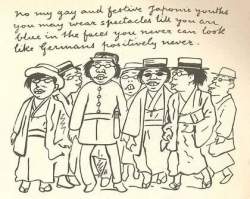 No my gay and festive Japone youths
you may wear spectacles till you are
blue in the faces you never can look
like Germans positively never.